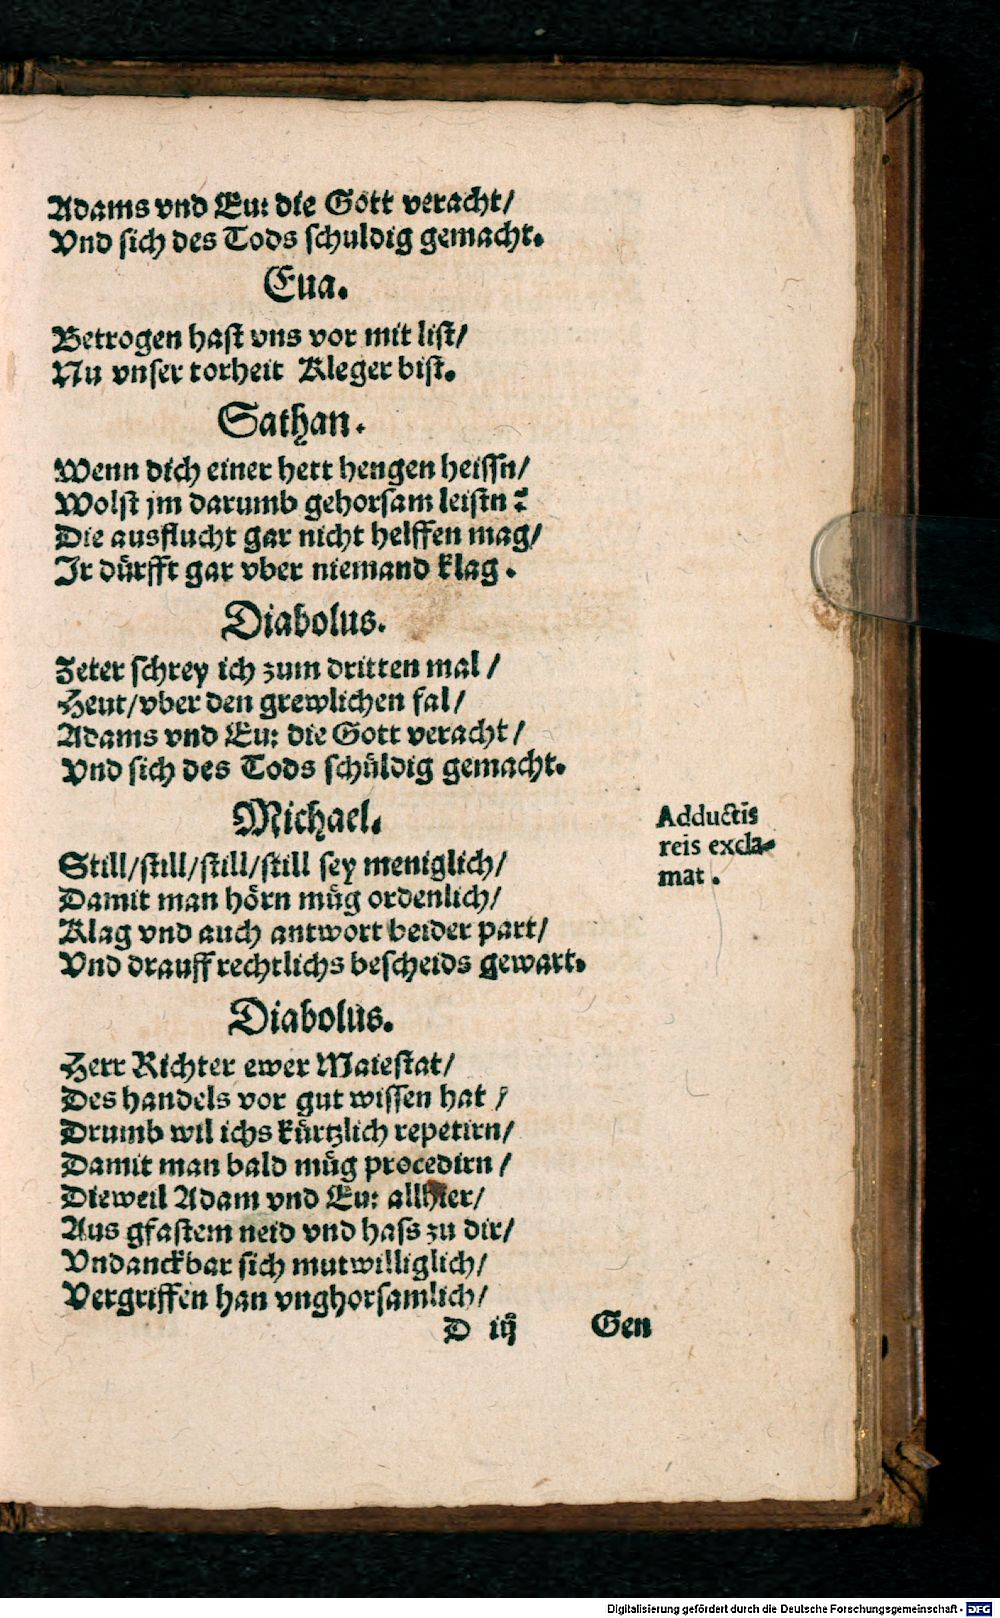 Adams vnd Eu: die Gott veracht/
Vnd sich des Tods schuldig gemacht.
Eua.
Betrogen hast vns vor mit list/
Nu vnser torheit Kleger bist.
Sathan.
Wenn dich einer hett hengen heissn/
Wolst jm darumb gehorsam leistn?
Die ausflucht gar nicht helffen mag/
Ir dürfft gar vber niemand klag.
Diabolus.
Zeter schrey ich zum dritten mal/
Heut/vber den grewlichen fal/
Adams vnd Eu: die Gott veracht/
Vnd sich des Tods schüldig gemacht.
Michael.
Adductis
reis excla-
mat.
Still/still/still/still sey meniglich/
Damit man hörn müg ordenlich/
Klag vnd auch antwort beider part/
Vnd drauff rechtlichs bescheids gewart.
Diabolus.
Herr Richter ewer Maiestat/
Des handels vor gut wissen hat/
Drumb wil ichs kürtzlich repetirn/
Damit man bald müg procedirn/
Dieweil Adam vnd Eu: allhier/
Aus gfastem neid vnd hass zu dir/
Vndanckbar sich mutwilliglich/
Vergriffen han vnghorsamlich/
D iij Gen
Digitalisierung gefördert durch die Deutsche Forschungsgemeinschaft - DFG